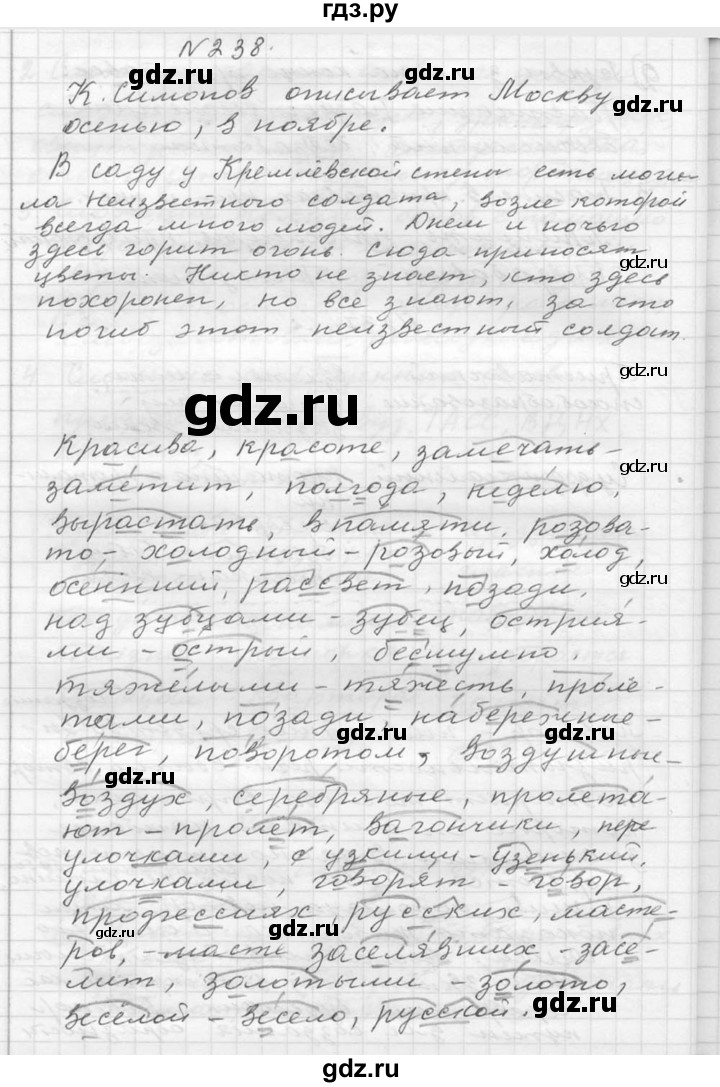 гдз.ру
№238.
gdz.ru gdz.ru
К. Симонов описывает Москву
осенью, в ноябре.
gdz.ru
В саду у Кремлёвской стены есть моги-
ла Неизвестного солдата, возле которой
всегда много людей. Днем и ночью
здесь горит огонь. Сюда приносят
цветы. Никто не знает, кто здесь
gdz.ru
похоронен, но все знают, за что
погиб этот неизвестный солдат.
gdz.ru
gdz.ru
Красива, красоте, замечать-
gdz.ru
заметит, полгода, неделю,
gdz.ru
вырастать, в памяти, розова-
то-холодный-розовый, холод,
осенний, рассвет, позади,
gdz.ru
над зубцами - зубец, острия-
gdz.ru
ми - острый, бесшумно,
тяжёлыми - тяжесть, проле-
тами, позади, набережные-
gdz.ru
берег, поворотом, воздушные-
gdz.ru
воздух, серебряные, пролета-
ют - пролёт, вагончики, пере
улочками, с узкими - узенький,
gdz.ru
улочками, говорят - говор,
gdz.ru
профессиях, русских, масте-
ров, - масте заселявших - засе-
лит, золотыми - золото,
gdz.ru
весёлой - весело, русской.
gdz.ru
gdz.ru